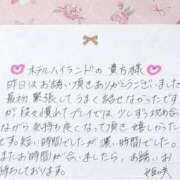 ホテルハイランドの貴方様
昨日はお誘い頂きありがとうございました
最初、緊張してうまく話せなかったですが
段々慣れてプレイでは、少しずつ攻め
ながら気持ち良くなって頂き嬉しかったで
す。短い時間でしたが濃い時間でした。
またお時間が合いましたら、お誘いお
待ちしております。